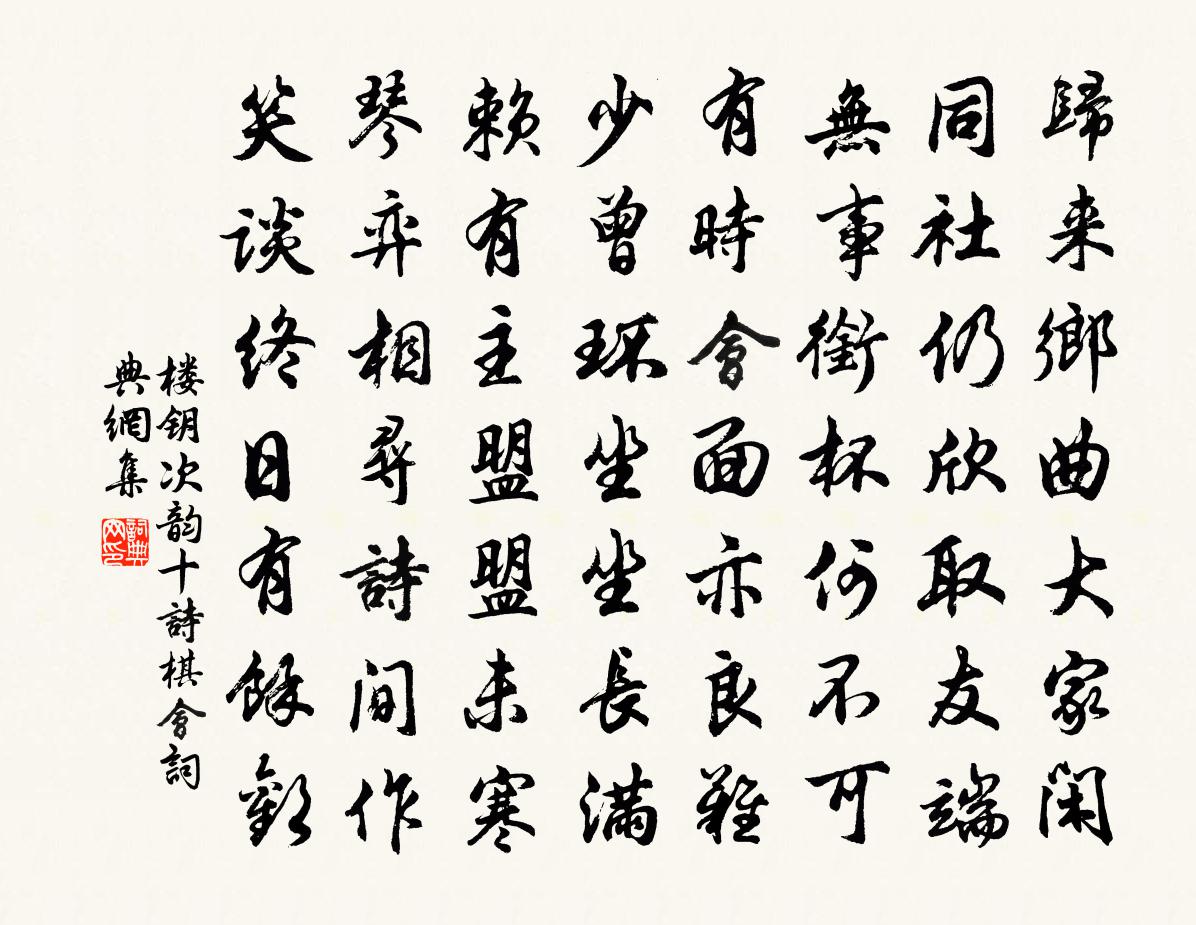 歸来鄉曲大家閑
同社仍欣取友端
無事銜杯何不可
有時會面亦良難
少曾环坐坐長滿
賴有主盟盟未寒
琴弈相尋詩間作
笑談終日有餘歡
楼钥次韵十詩棋會詞
典網集
詞典
网印